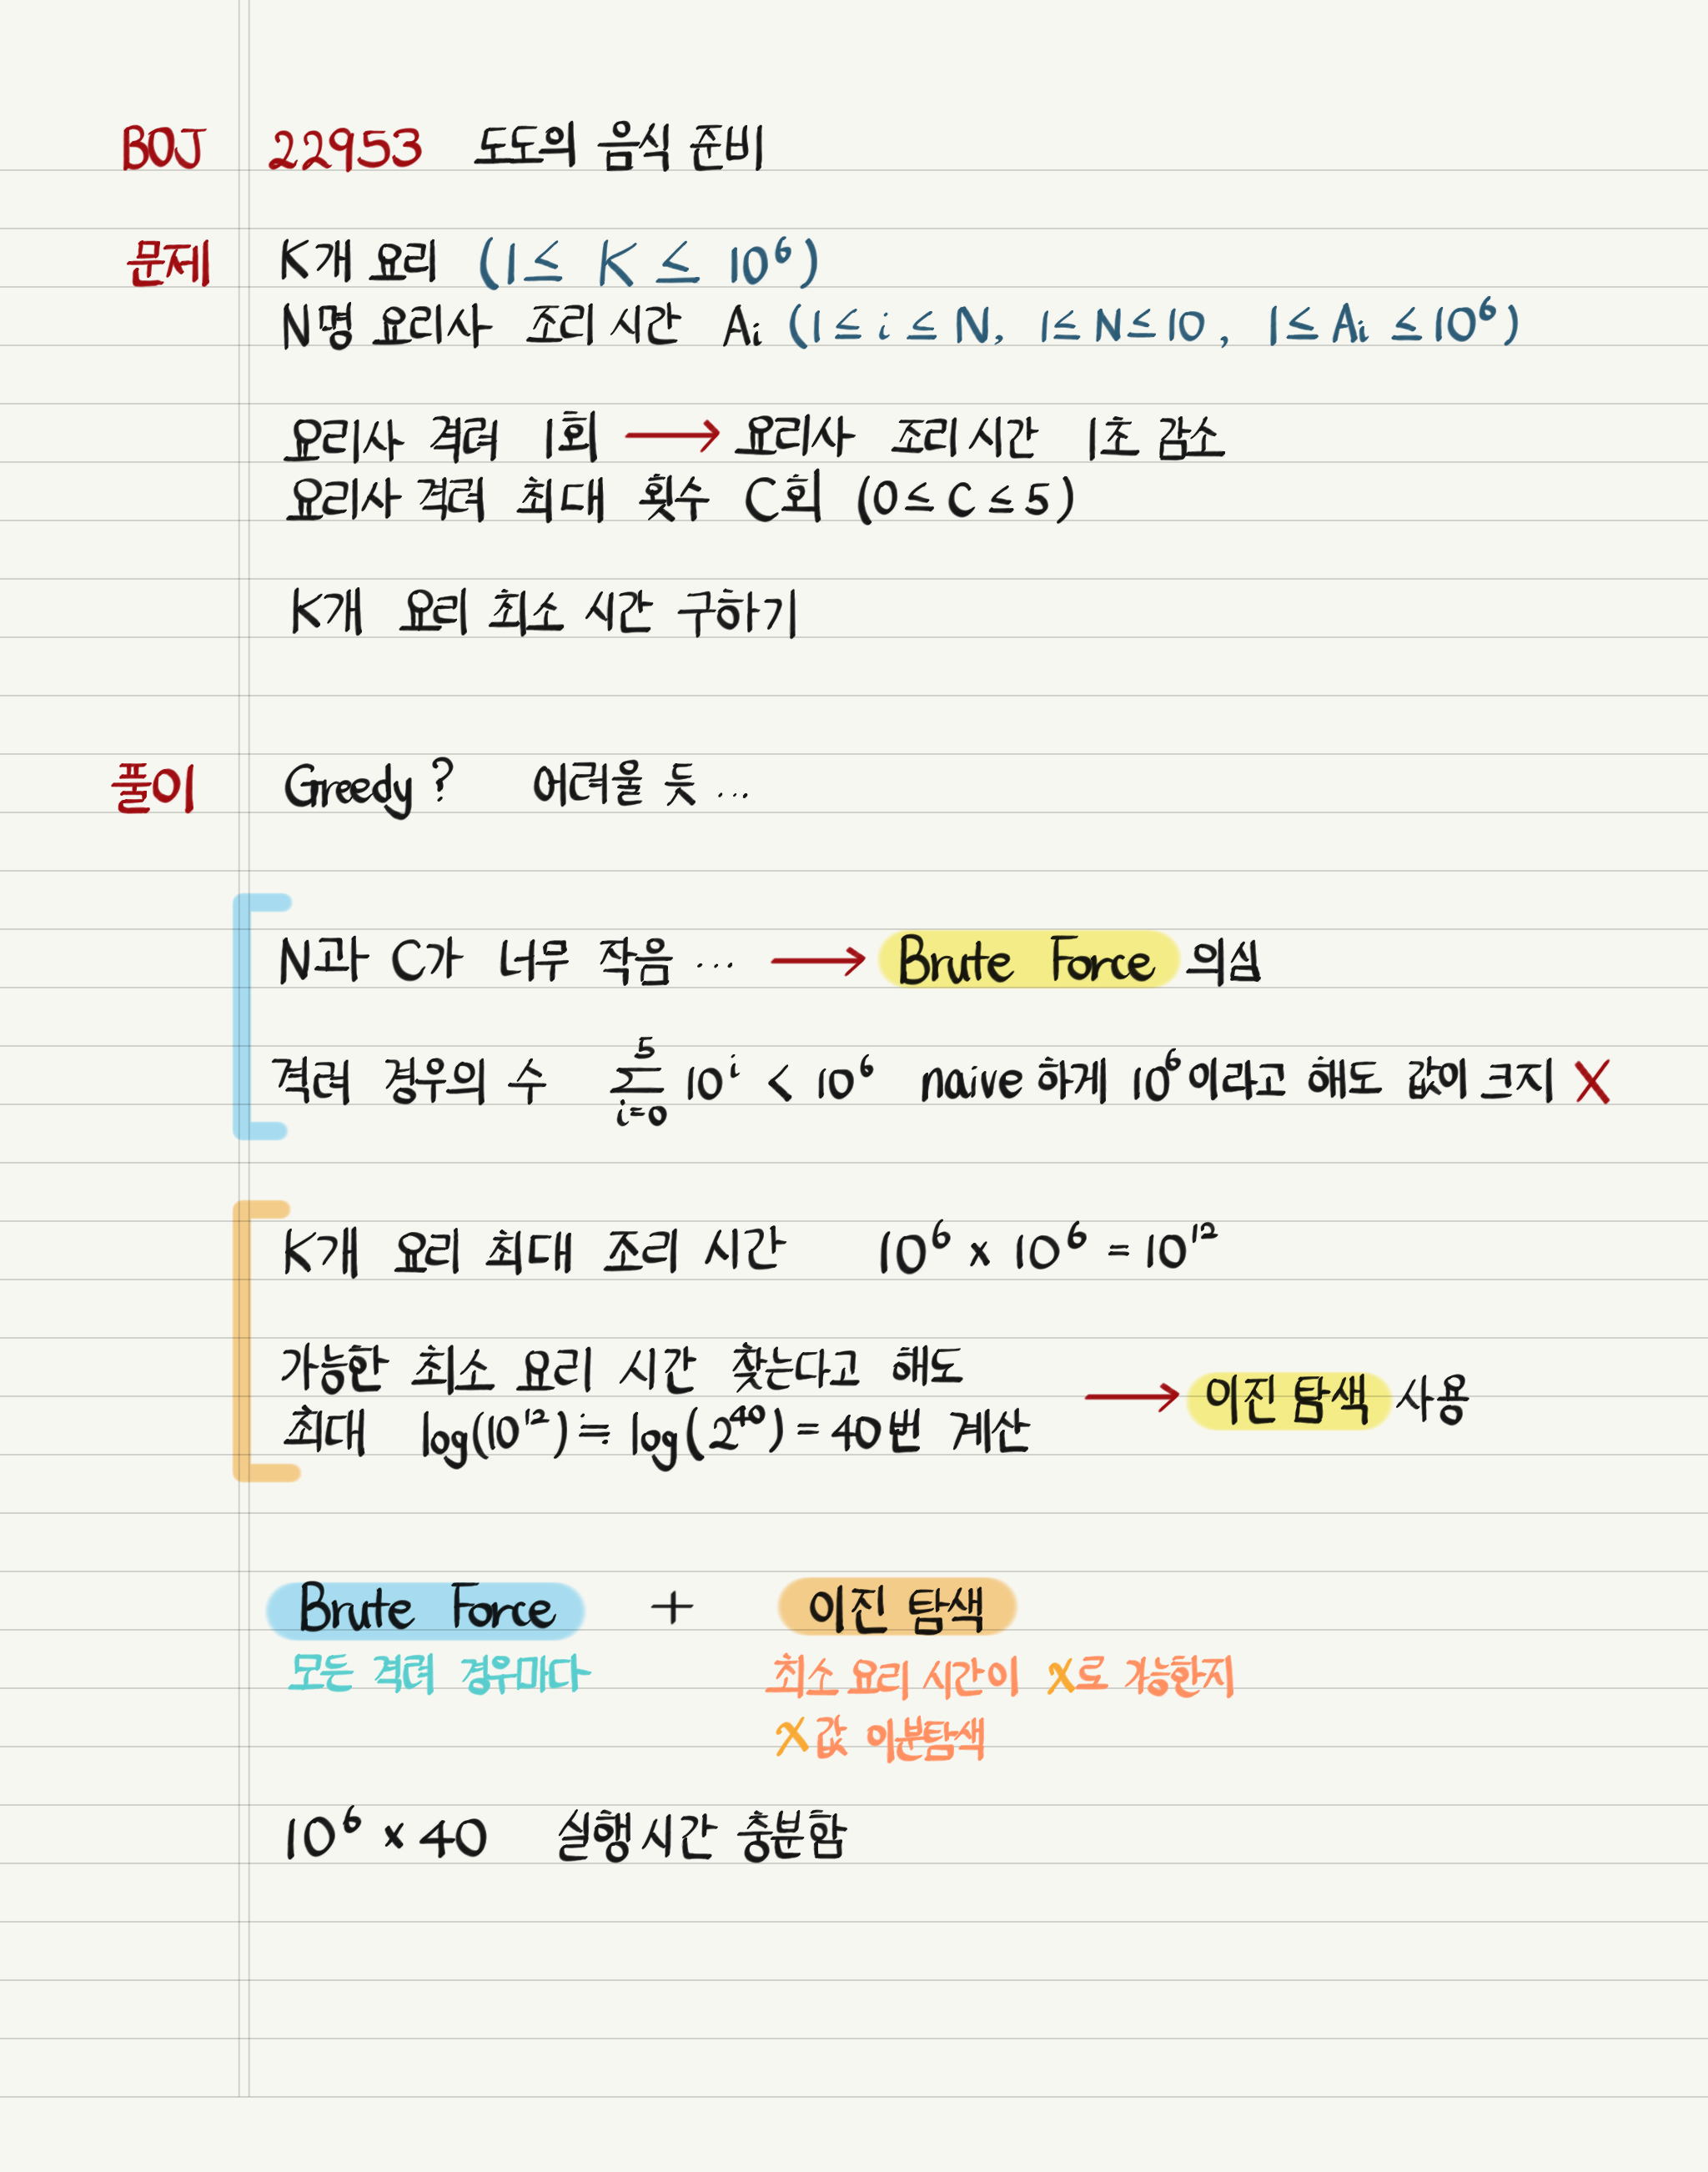 BOJ 22953 도도의 음식 준비
문제 K개 요리 (1 ≤ K ≤ 10⁶)
N명 요리사 조리 시간 Aᵢ (1 ≤ i ≤ N, 1 ≤ N ≤ 10, 1 ≤ Aᵢ ≤ 10⁶)
요리사 격려 1회 → 요리사 조리 시간 1초 감소
요리사 격려 최대 횟수 C회 (0 ≤ C ≤ 5)
K개 요리 최소 시간 구하기
풀이 Greedy? 어려울 듯 ...
N과 C가 너무 작음 ... → Brute Force 의심
격려 경우의 수 5 Σ i=0 10ⁱ < 10⁶ naive 하게 10⁶이라고 해도 값이 크지 X
K개 요리 최대 조리 시간 10⁶ × 10⁶ = 10¹²
가능한 최소 요리 시간 찾는다고 해도
최대 log(10¹²) ≒ log(2⁴⁰) = 40번 계산 → 이진 탐색 사용
Brute Force + 이진 탐색
모든 격려 경우마다 최소 요리 시간이 X로 가능한지
X값 이분탐색
10⁶ × 40 실행시간 충분함